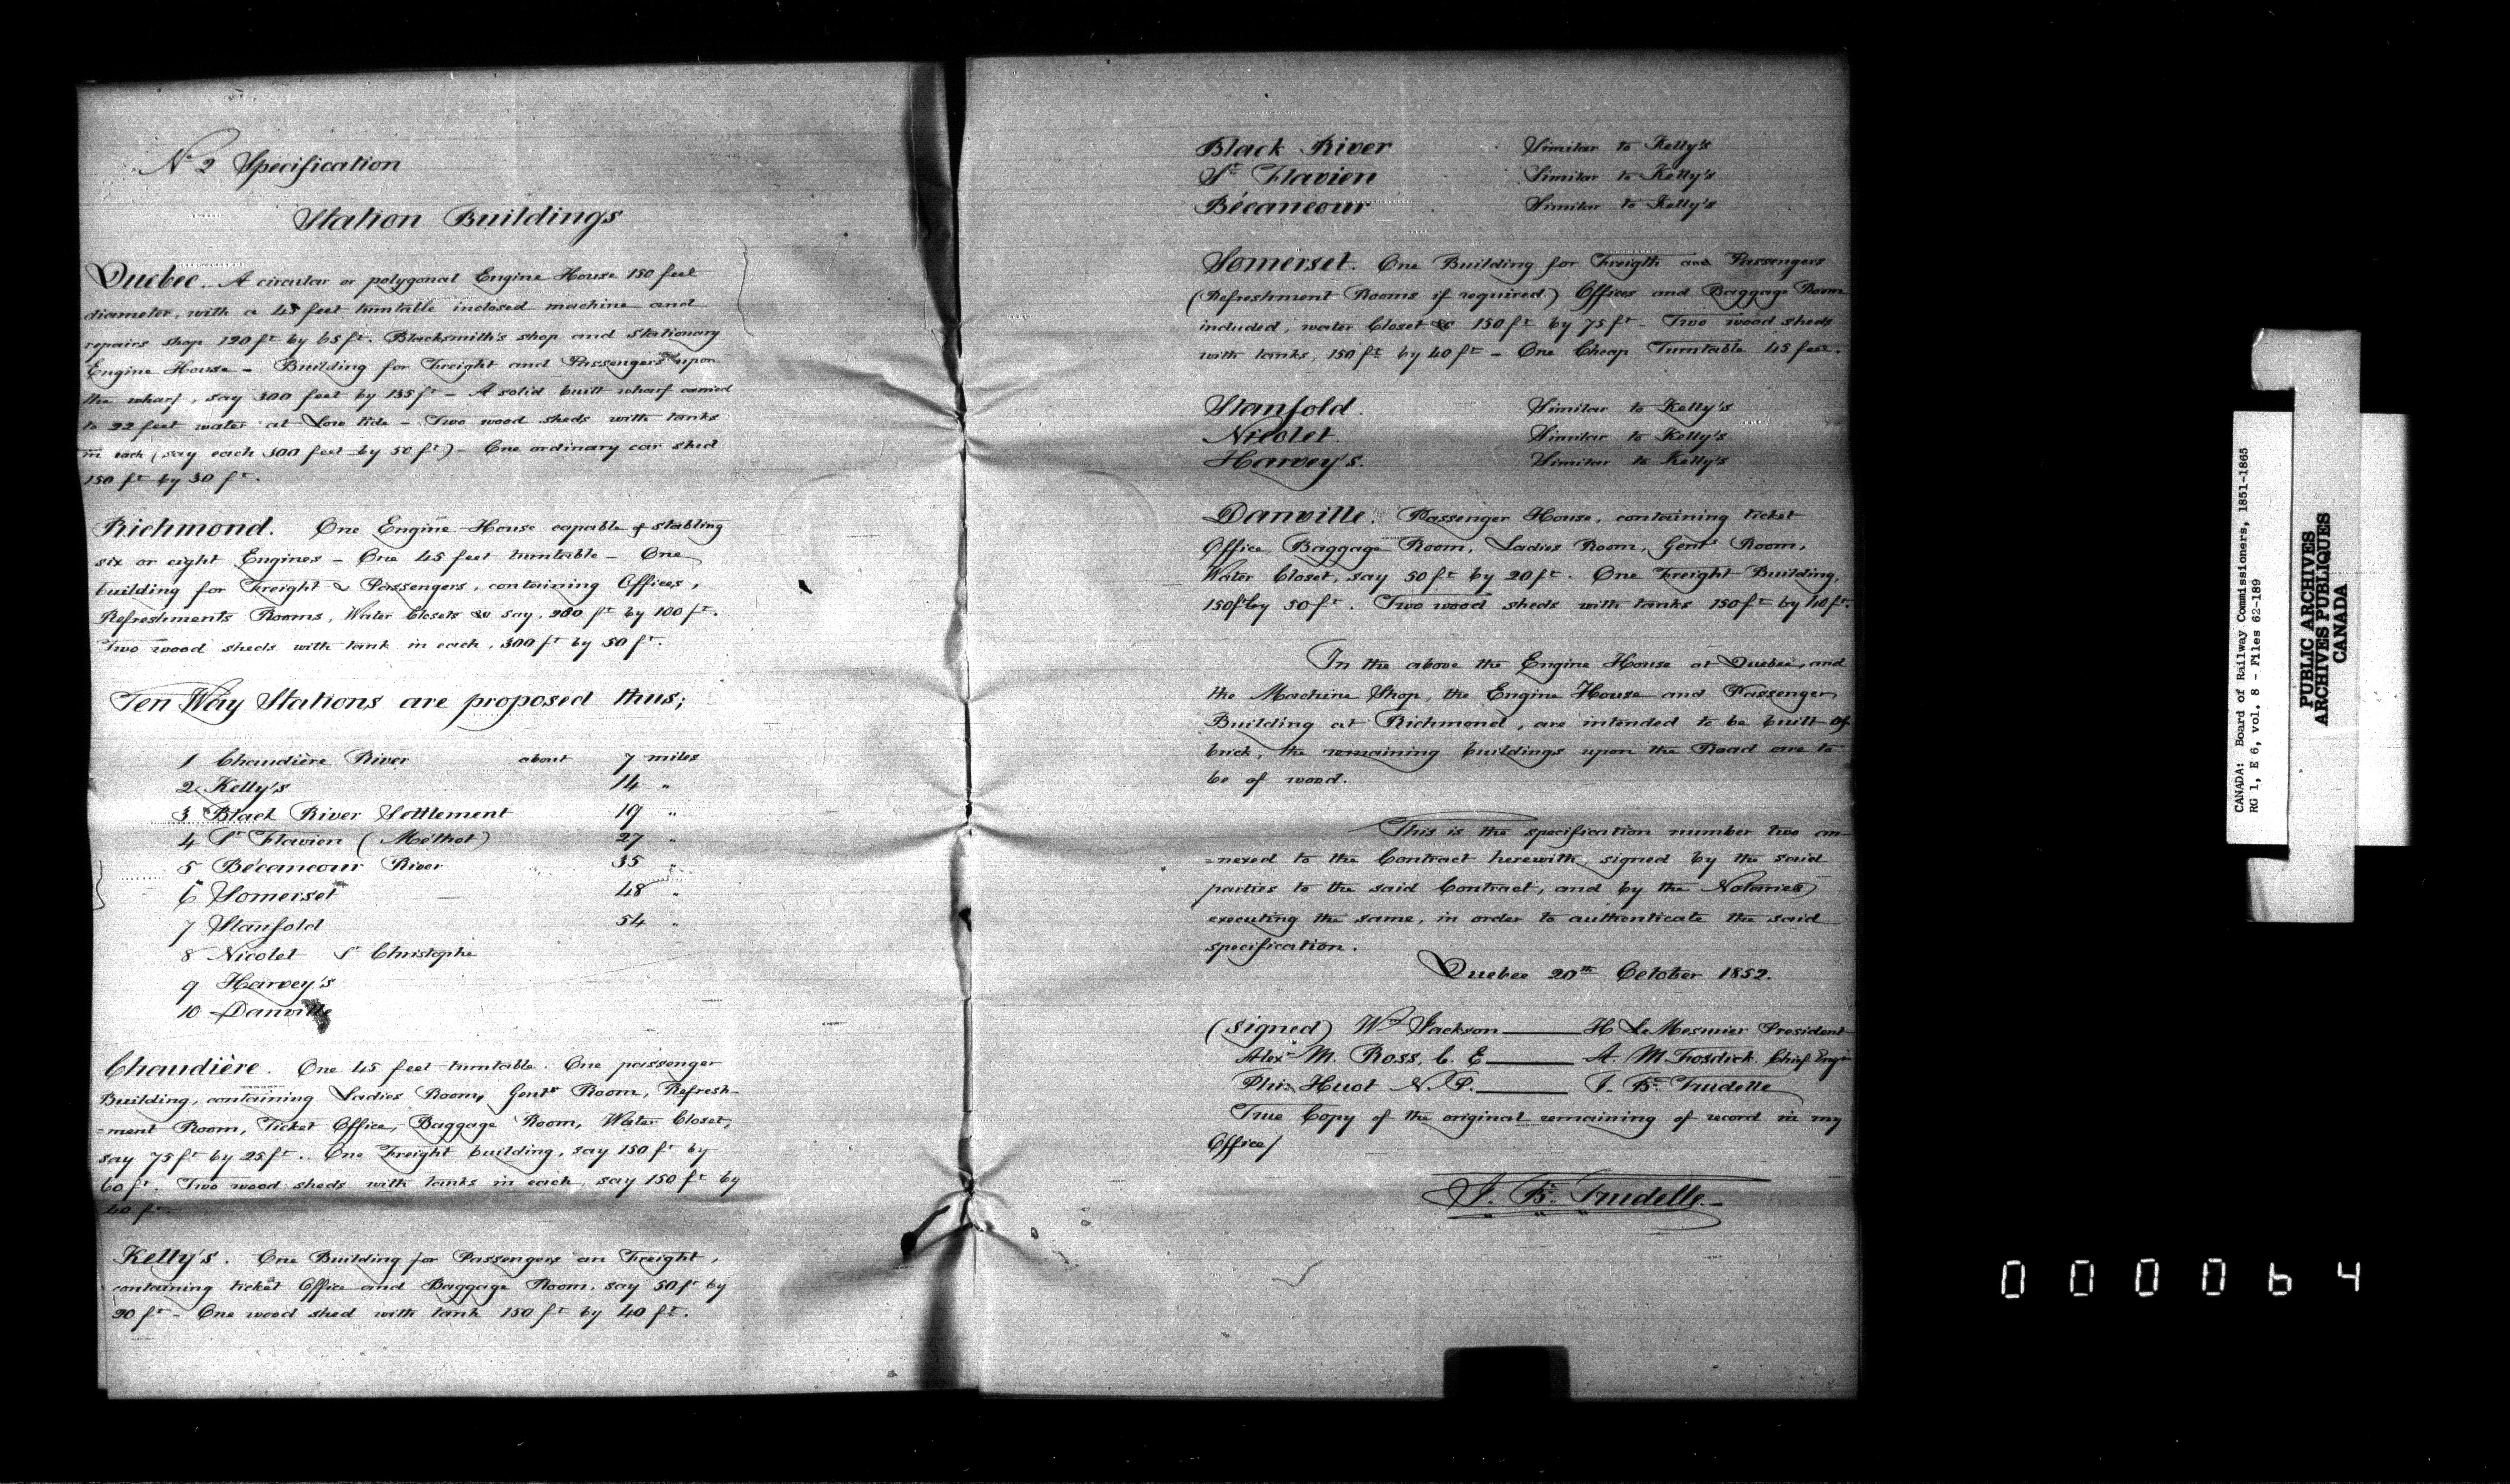 No 2 Specification
Station Buildings
Quebec. A circular or polygonal Engine House 150 feet
diameter, with a 45 feet turntable inclosed machine and
repairs shop 120 ft by 65 ft. Blacksmith's shop and stationary
Engine House – Building for Freight and Passengers upon
the wharf, say 300 feet by 135 ft – A solid built wharf carried
to 22 feet water at Low tide – Two wood sheds with tanks
in each (say each 300 feet by 50 ft) – One ordinary car shed
150 ft by 30 ft.
Richmond. One Engine-House capable of stabling
six or eight Engines – One 45 feet turntable – One
building for Freight & Passengers, containing Offices,
Refreshments Rooms, Water Closets &c say, 200 ft by 100 ft.
Two wood sheds with tank in each, 300 ft by 50 ft.
Ten Way Stations are proposed thus;
1 Chaudière River about 7 miles
2 Kelly's 14 "
3 Black River Settlement 19 "
4 St Flavien (Méthot) 27 "
5 Bécancour River 35 "
6 Somerset 48 "
7 Stanfold 54 "
8 Nicolet St Christophe
9 Harvey's
10 Danville
Chaudière. One 45 feet turntable. One passenger
Building, containing Ladies Room, Gents Room, Refresh-
=ment Room, Ticket Office, Baggage Room, Water Closet,
say 75 ft by 25 ft. One Freight building, say 150 ft by
60 ft. Two wood sheds with tanks in each, say 150 ft by
40 ft.
Kelly's. One Building for Passengers an Freight,
containing ticket Office and Baggage Room, say 50 ft by
20 ft – One wood shed with tank 150 ft by 40 ft.
Black River Similar to Kelly's
St Flavien Similar to Kelly's
Bécancour Similar to Kelly's
Somerset. One Building for Freigth and Passengers
(Refreshment Rooms if required) Offices and Baggage Room
included, water Closet &c 150 ft by 75 ft – Two wood sheds
with tanks, 150 ft by 40 ft – One Cheap Turntable 45 feet.
Stanfold. Similar to Kelly's
Nicolet. Similar to Kelly's
Harvey's. Similar to Kelly's
Danville. Passenger House, containing ticket
Office, Baggage Room, Ladies Room, Gents Room,
Water Closet, say 50 ft by 20 ft. One Freight Building,
150 ft by 50 ft. Two wood sheds with tanks 150 ft by 40 ft.
In the above the Engine House at Quebec, and
the Machine Shop, the Engine House and Passenger
Building at Richmond, are intended to be built of
brick, the remaining buildings upon the Road are to
be of wood.
This is the specification number two an-
=nexed to the Contract herewith, signed by the said
parties to the said Contract, and by the Notaries
executing the same, in order to authenticate the said
specification.
Quebec 20th October 1852.
(signed) Wm Jackson — H LeMesurier President
Alexr M. Ross, C. E — A. M. Trosdick. Chief Engr
Phi: Huot N. P. — J. Bte Trudelle
True Copy of the original remaining of record in my
Office/
J. Bte Trudelle.
CANADA: Board of Railway Commissioners, 1851-1865
RG 1, E 6, vol. 8 - Files 62-189
PUBLIC ARCHIVES
ARCHIVES PUBLIQUES
CANADA
000064